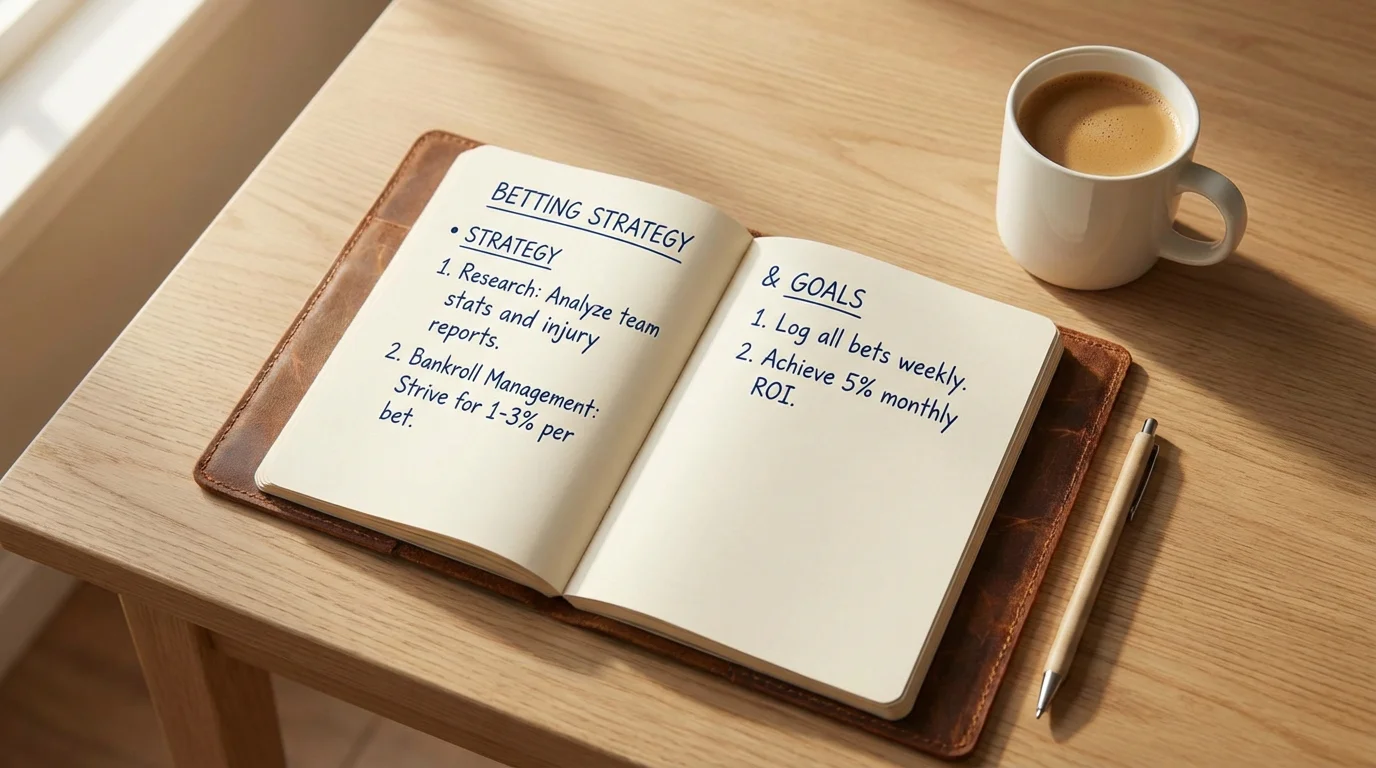 BETTING STRATEGY
• STRATEGY
1. Research: Analyze team
stats and injury
reports.
2. Bankroll Management:
Strive for 1-3% per
bet.
& GOALS
1. Log all bets weekly.
2. Achieve 5% monthly
ROI.